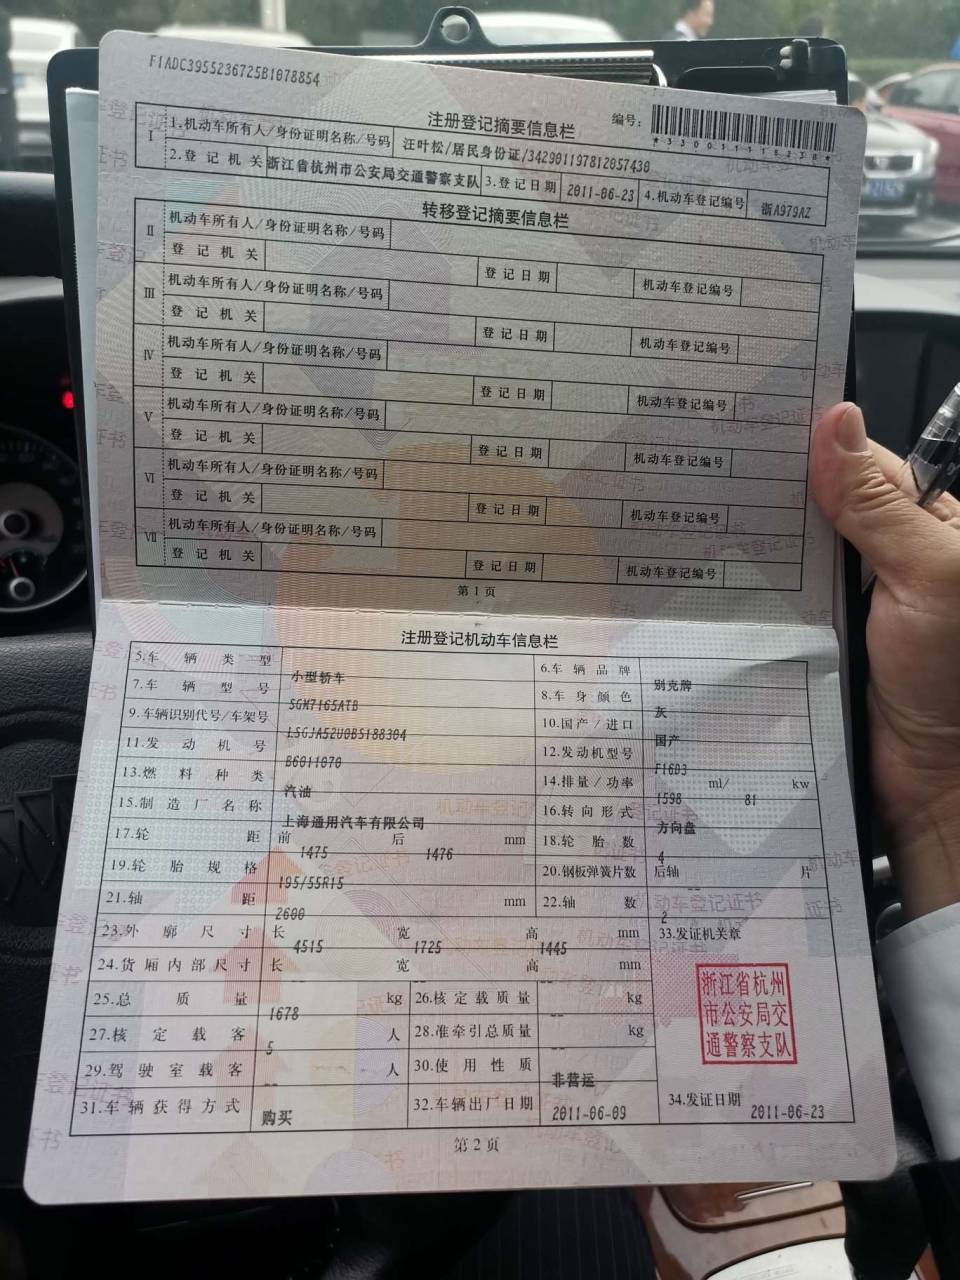 F1ADC3955236725B1078854
注册登记摘要信息栏
编号：
*330011118238*
I 1.机动车所有人/身份证明名称/号码 汪叶松/居民身份证/342901197812057430
2.登记机关 浙江省杭州市公安局交通警察支队 3.登记日期 2011-06-23 4.机动车登记编号 浙A979AZ
转移登记摘要信息栏
II 机动车所有人/身份证明名称/号码
登记机关 登记日期 机动车登记编号
III 机动车所有人/身份证明名称/号码
登记机关 登记日期 机动车登记编号
IV 机动车所有人/身份证明名称/号码
登记机关 登记日期 机动车登记编号
V 机动车所有人/身份证明名称/号码
登记机关 登记日期 机动车登记编号
VI 机动车所有人/身份证明名称/号码
登记机关 登记日期 机动车登记编号
VII 机动车所有人/身份证明名称/号码
登记机关 登记日期 机动车登记编号
第1页
注册登记机动车信息栏
5.车辆类型 小型轿车 6.车辆品牌 别克牌
7.车辆型号 SGM7165ATB 8.车身颜色 灰
9.车辆识别代号/车架号 LSGJA52U0BS188304 10.国产/进口 国产
11.发动机号 B6011070 12.发动机型号 F16D3
13.燃料种类 汽油 14.排量/功率 1598 ml/ 81 kw
15.制造厂名称 上海通用汽车有限公司 16.转向形式 方向盘
17.轮距 前 1475 后 1476 mm 18.轮胎数 4
19.轮胎规格 195/55R15 20.钢板弹簧片数 后轴 -- 片
21.轴距 2600 mm 22.轴数 2
23.外廓尺寸 长 4515 宽 1725 高 1445 mm 33.发证机关章
24.货厢内部尺寸 长 -- 宽 -- 高 -- mm
25.总质量 1678 kg 26.核定载质量 -- kg
27.核定载客 5 人 28.准牵引总质量 -- kg
29.驾驶室载客 -- 人 30.使用性质 非营运
31.车辆获得方式 购买 32.车辆出厂日期 2011-06-09 34.发证日期 2011-06-23
浙江省杭州
市公安局交
通警察支队
第2页